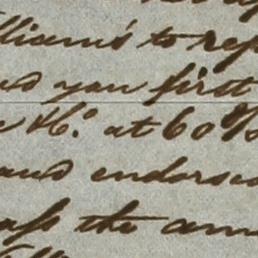 lliam's to rep
nd your first
at 60 %
and endorse
ass the am